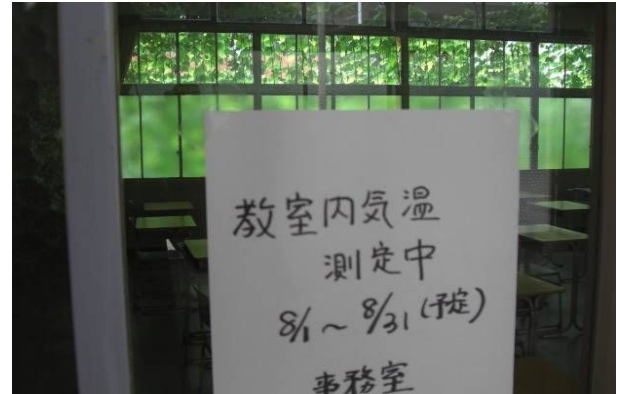 教室内気温
測定中
8/1～8/31(予定)
事務室